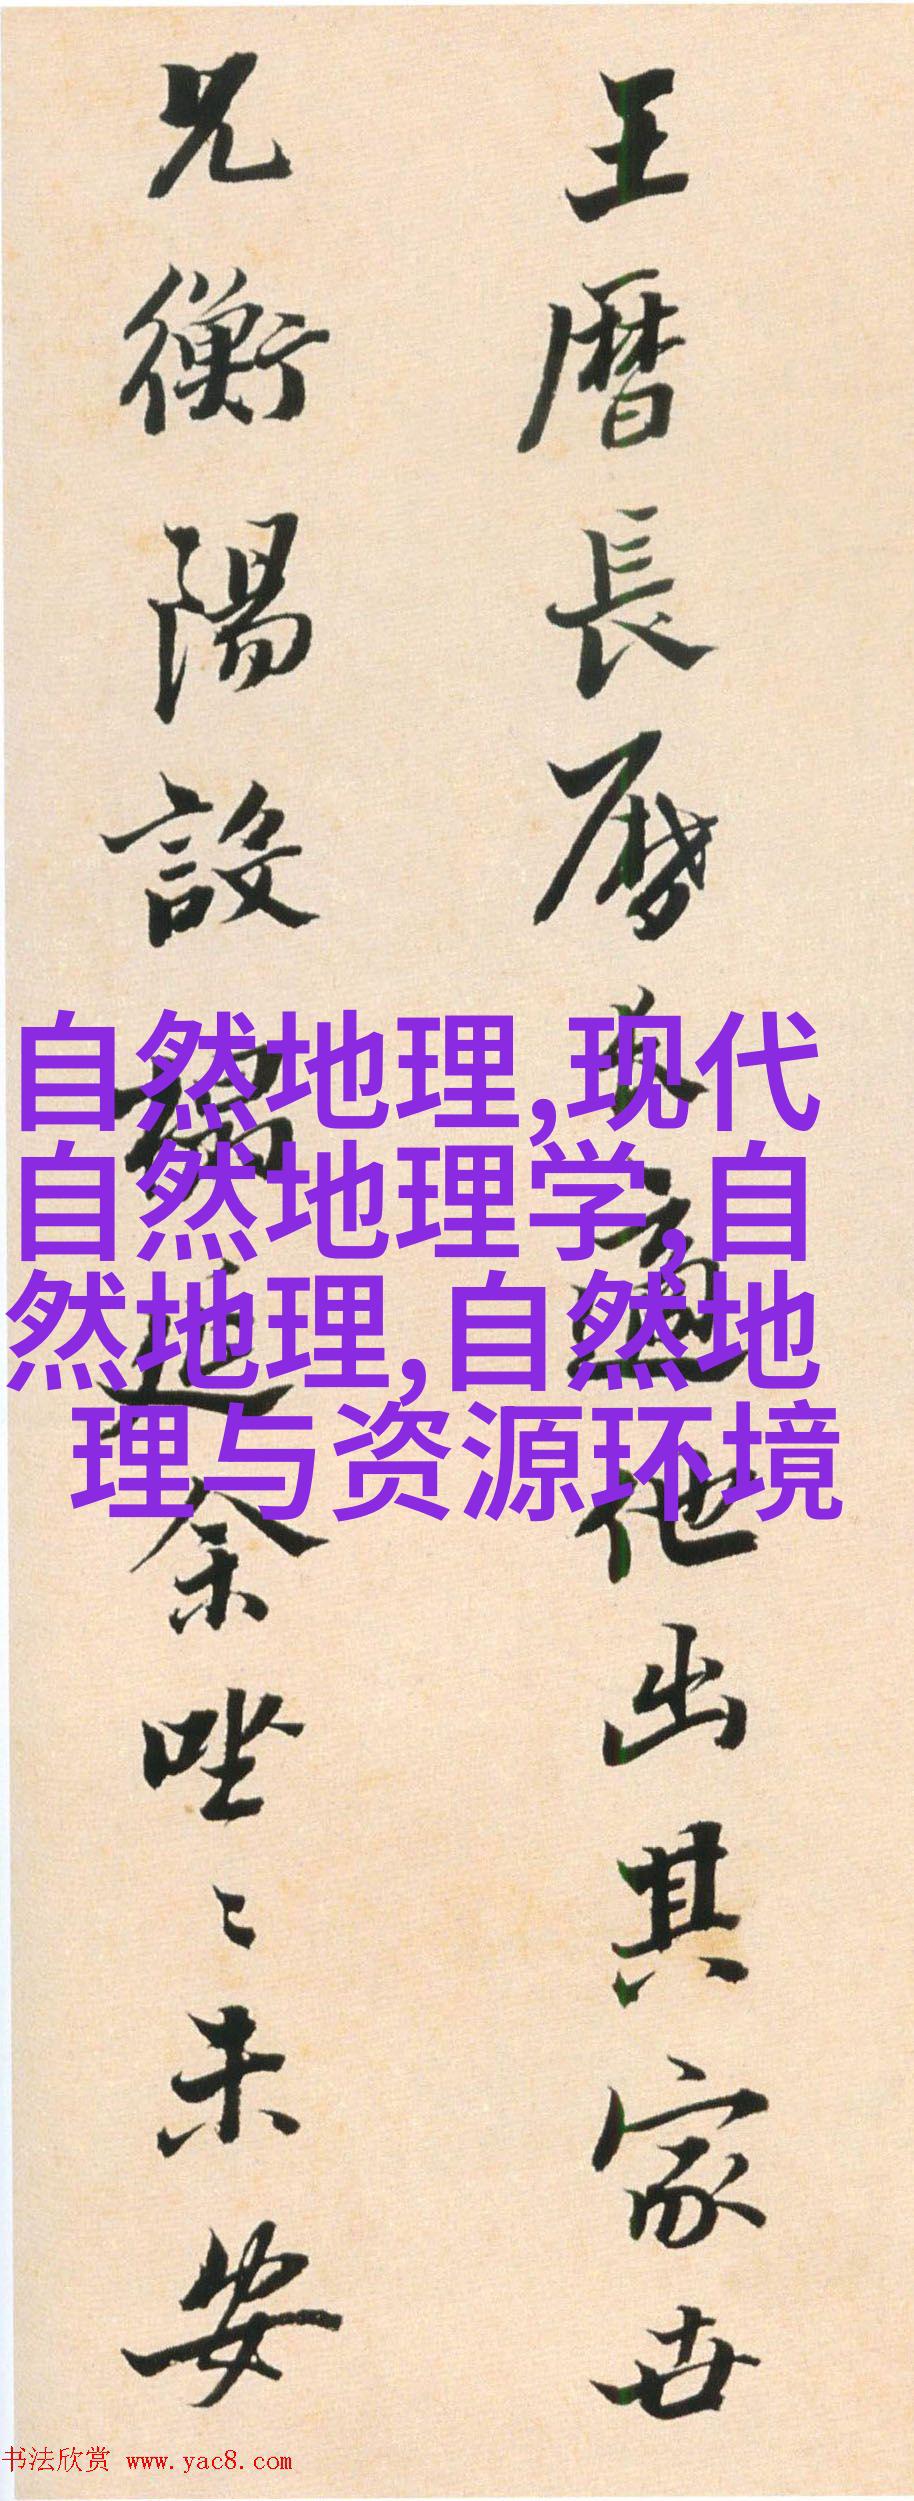 王暦長
他出其家
兄衡陽設
余唑
未安
自然地理,现代
自然地理学,自
然地理,自然地
理与资源环境
书法欣赏 www.yac8.com